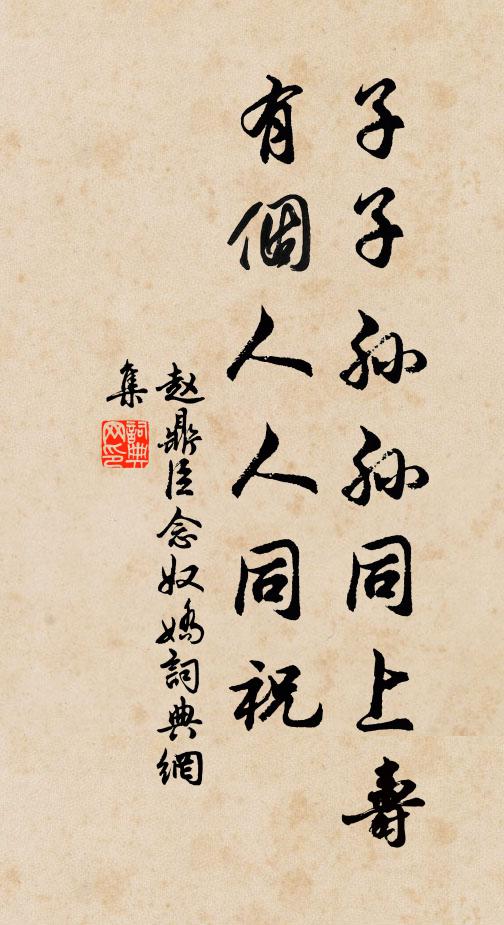 子子孙孙同上壽
有個人人同祝
赵鼎臣念奴嬌詞典網
集
詞典
网印